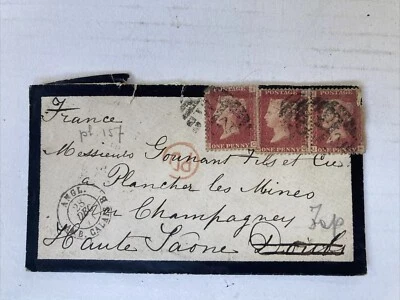 France
pl. 157
POSTAGE
ONE PENNY
POSTAGE
ONE PENNY
POSTAGE
ONE PENNY
Messieurs Gounant Fils et Cie
PD
à Plancher les Mines
ANGL.
28
DEC
CALAIS
par Champagney
Haute Saône Doubs